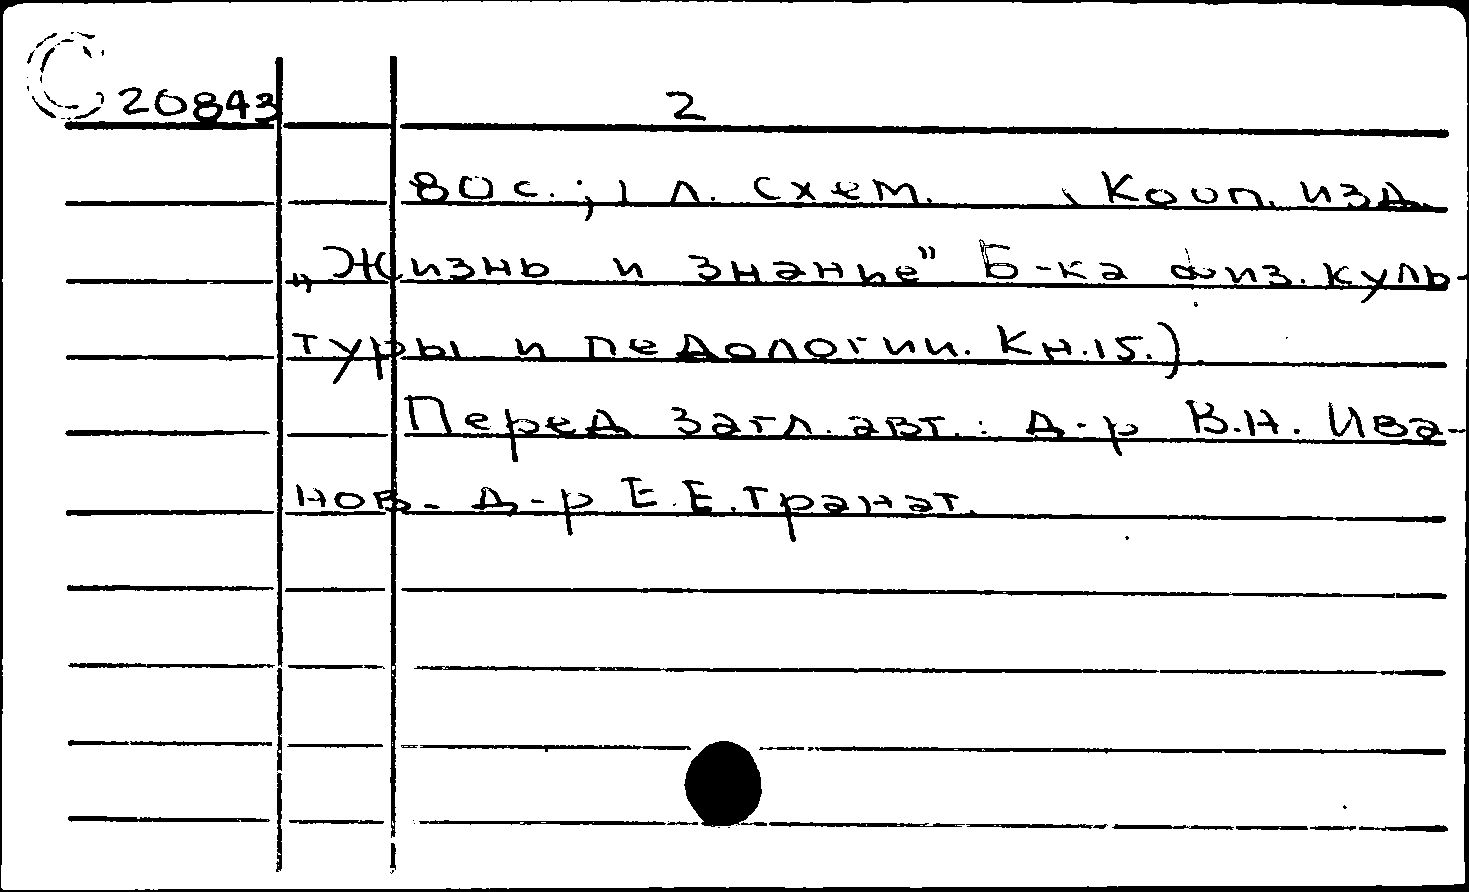 С 20843 2
80 с.; 1 л. схем. (Кооп. изд.
„Жизнь и знанье" Б-ка физ. куль-
туры и педологии. Кн. 15.).
Перед загл. авт.: Д-р В.Н. Ива-
нов. Д-р Е.Е. Гранат.